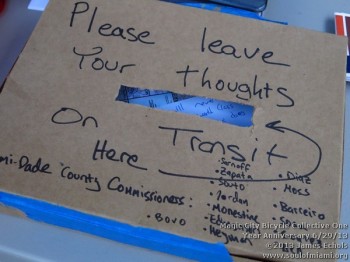 Please leave
Your thoughts
On Transit
Here
mi-Dade County Commissioners:
• Bovo
• Zapata
• Souto
• Jordan
• Monestime
• Diaz
• Moss
• Barreiro
Magic City Bicycle Collective One
Year Anniversary 6/29/13
© 2013 James Echols
www.soulofmiami.org